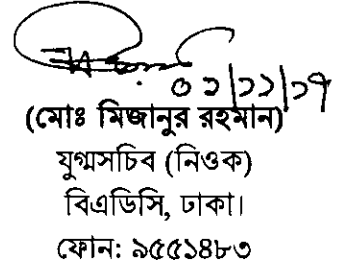 ০১/১১/১৭
(মোঃ মিজানুর রহমান)
যুগ্মসচিব (নিওক)
বিএডিসি, ঢাকা।
ফোন: ৯৫৫১৪৮৩